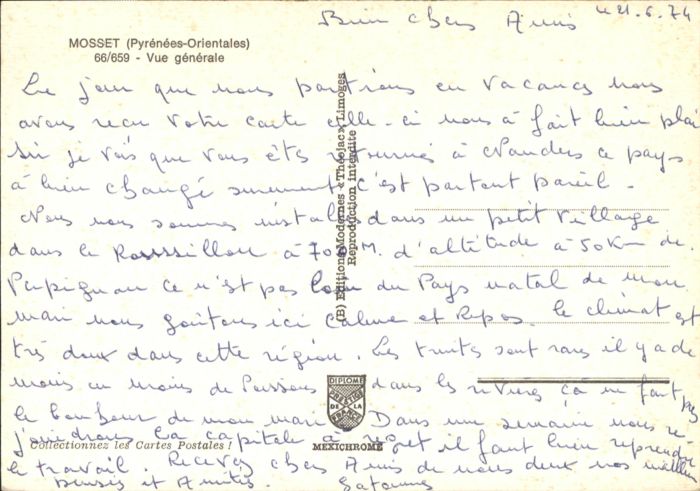 Bien chers Amis le 21.6.74
MOSSET (Pyrénées-Orientales)
66/659 - Vue générale
Le jour que nous partions en vacances nous
avons recu votre carte celle-ci nous à fait bien plai
sir je vois que vous êtes retourné à ce pays
à bien changé surement c'est partout pareil.
Nous nous sommes installés dans un petit village
dans le Roussillon à 700 M. d'altitude à 50 Km de
Perpignan ce n'est pas loin du Pays natal de mon
mari nous goutons ici calme et Repos. le climat est
très doux dans cette région. Les truites sont rares il y a de
moins en moins de Poissons dans les rivières ça ne fait pas
le bonheur de mon mari. Dans une semaine nous re
joindrons la capitale à regret il faut bien reprendre
le travail. Recevez chers Amis de nous deux nos meilleurs
et Amitiés.
(B) Editions Modernes «Théojac» Limoges
Reproduction interdite
DIPLOME
PRESTIGE
DE LA
FRANCE
MEXICHROME
Collectionnez les Cartes Postales !